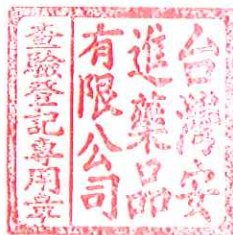 台灣安
進藥品
有限公司
查驗登記專用章